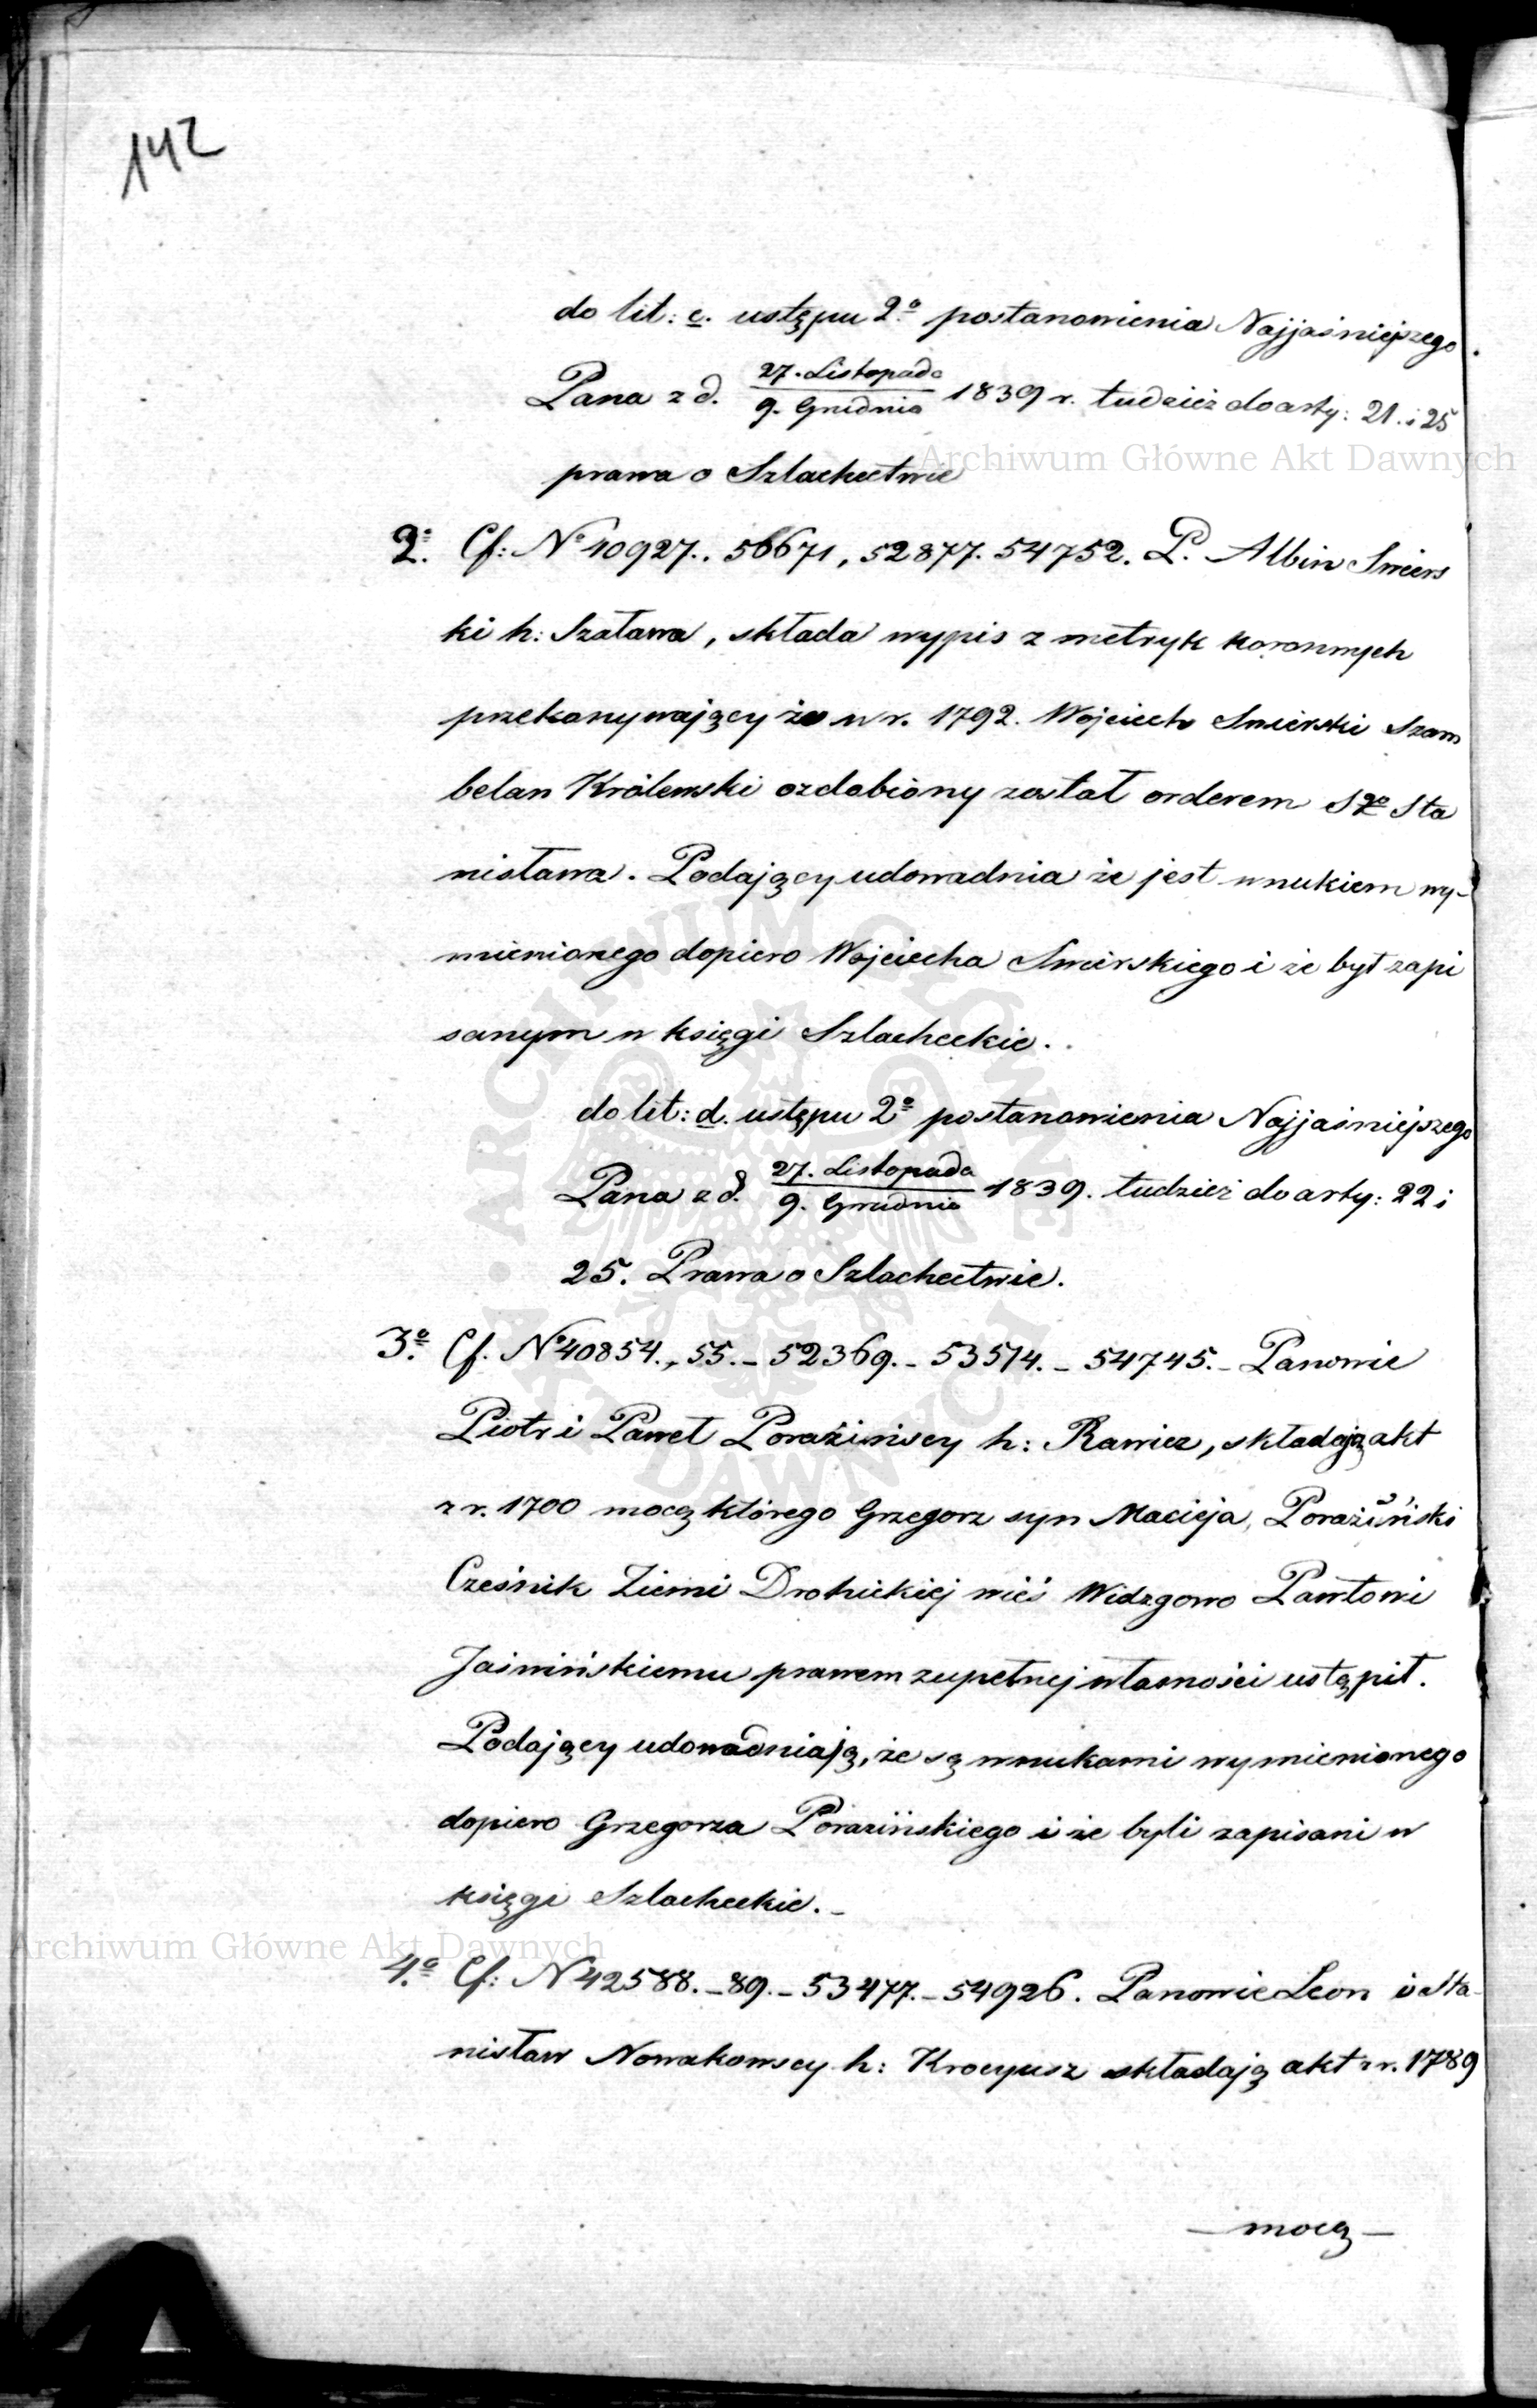 142
do lit: c. ustępu 2º postanowienia Najjaśniejszego
Pana z d. 27. Listopada / 9. Grudnia 1839 r. tudzież do arty: 21. i 25
prawa o Szlachectwie
Archiwum Główne Akt Dawnych
2º. Cf: Nº 40927., 56671, 52877. 54752. P. Albin Smiers
ki h: Szaława, składa wypis z metryk koronnych
przekonywający że w r. 1792. Wojciech Smierski Szam
belan Królewski ozdobiony został orderem Sgo Sta
nisława. Podający udowadnia że jest wnukiem wy-
mienionego dopiero Wojciecha Smierskiego i że był zapi
sanym w księgi Szlacheckie.
do lit: d. ustępu 2º postanowienia Najjaśniejszego
Pana z d. 27. Listopada / 9. Grudnia 1839. tudzież do arty: 22 i
25. Prawa o Szlachectwie.
3º. Cf. Nº 40854., 55. – 52369. – 53514. – 54745. – Panowie
Piotr i Paweł Poraźińscy h: Rawicz, składają akt
z r. 1700 mocą którego Grzegorz syn Macieja, Poraźiński
Cześnik Ziemi Drohickiej wieś Widzgowo Pawłowi
Jaświńskiemu prawem zupełnej własności ustąpił.
Podający udowadniają, że są wnukami wymienionego
dopiero Grzegorza Porazińskiego i że byli zapisani w
księgi Szlacheckie. –
Archiwum Główne Akt Dawnych
4º. Cf: N 42588. – 89. – 53477. – 54926. Panowie Leon i Sta-
nisław Nowakowscy h: Krocyusz składają akt z r. 1789
– mocą –
ARCHIWUM GŁÓWNE AKT DAWNYCH